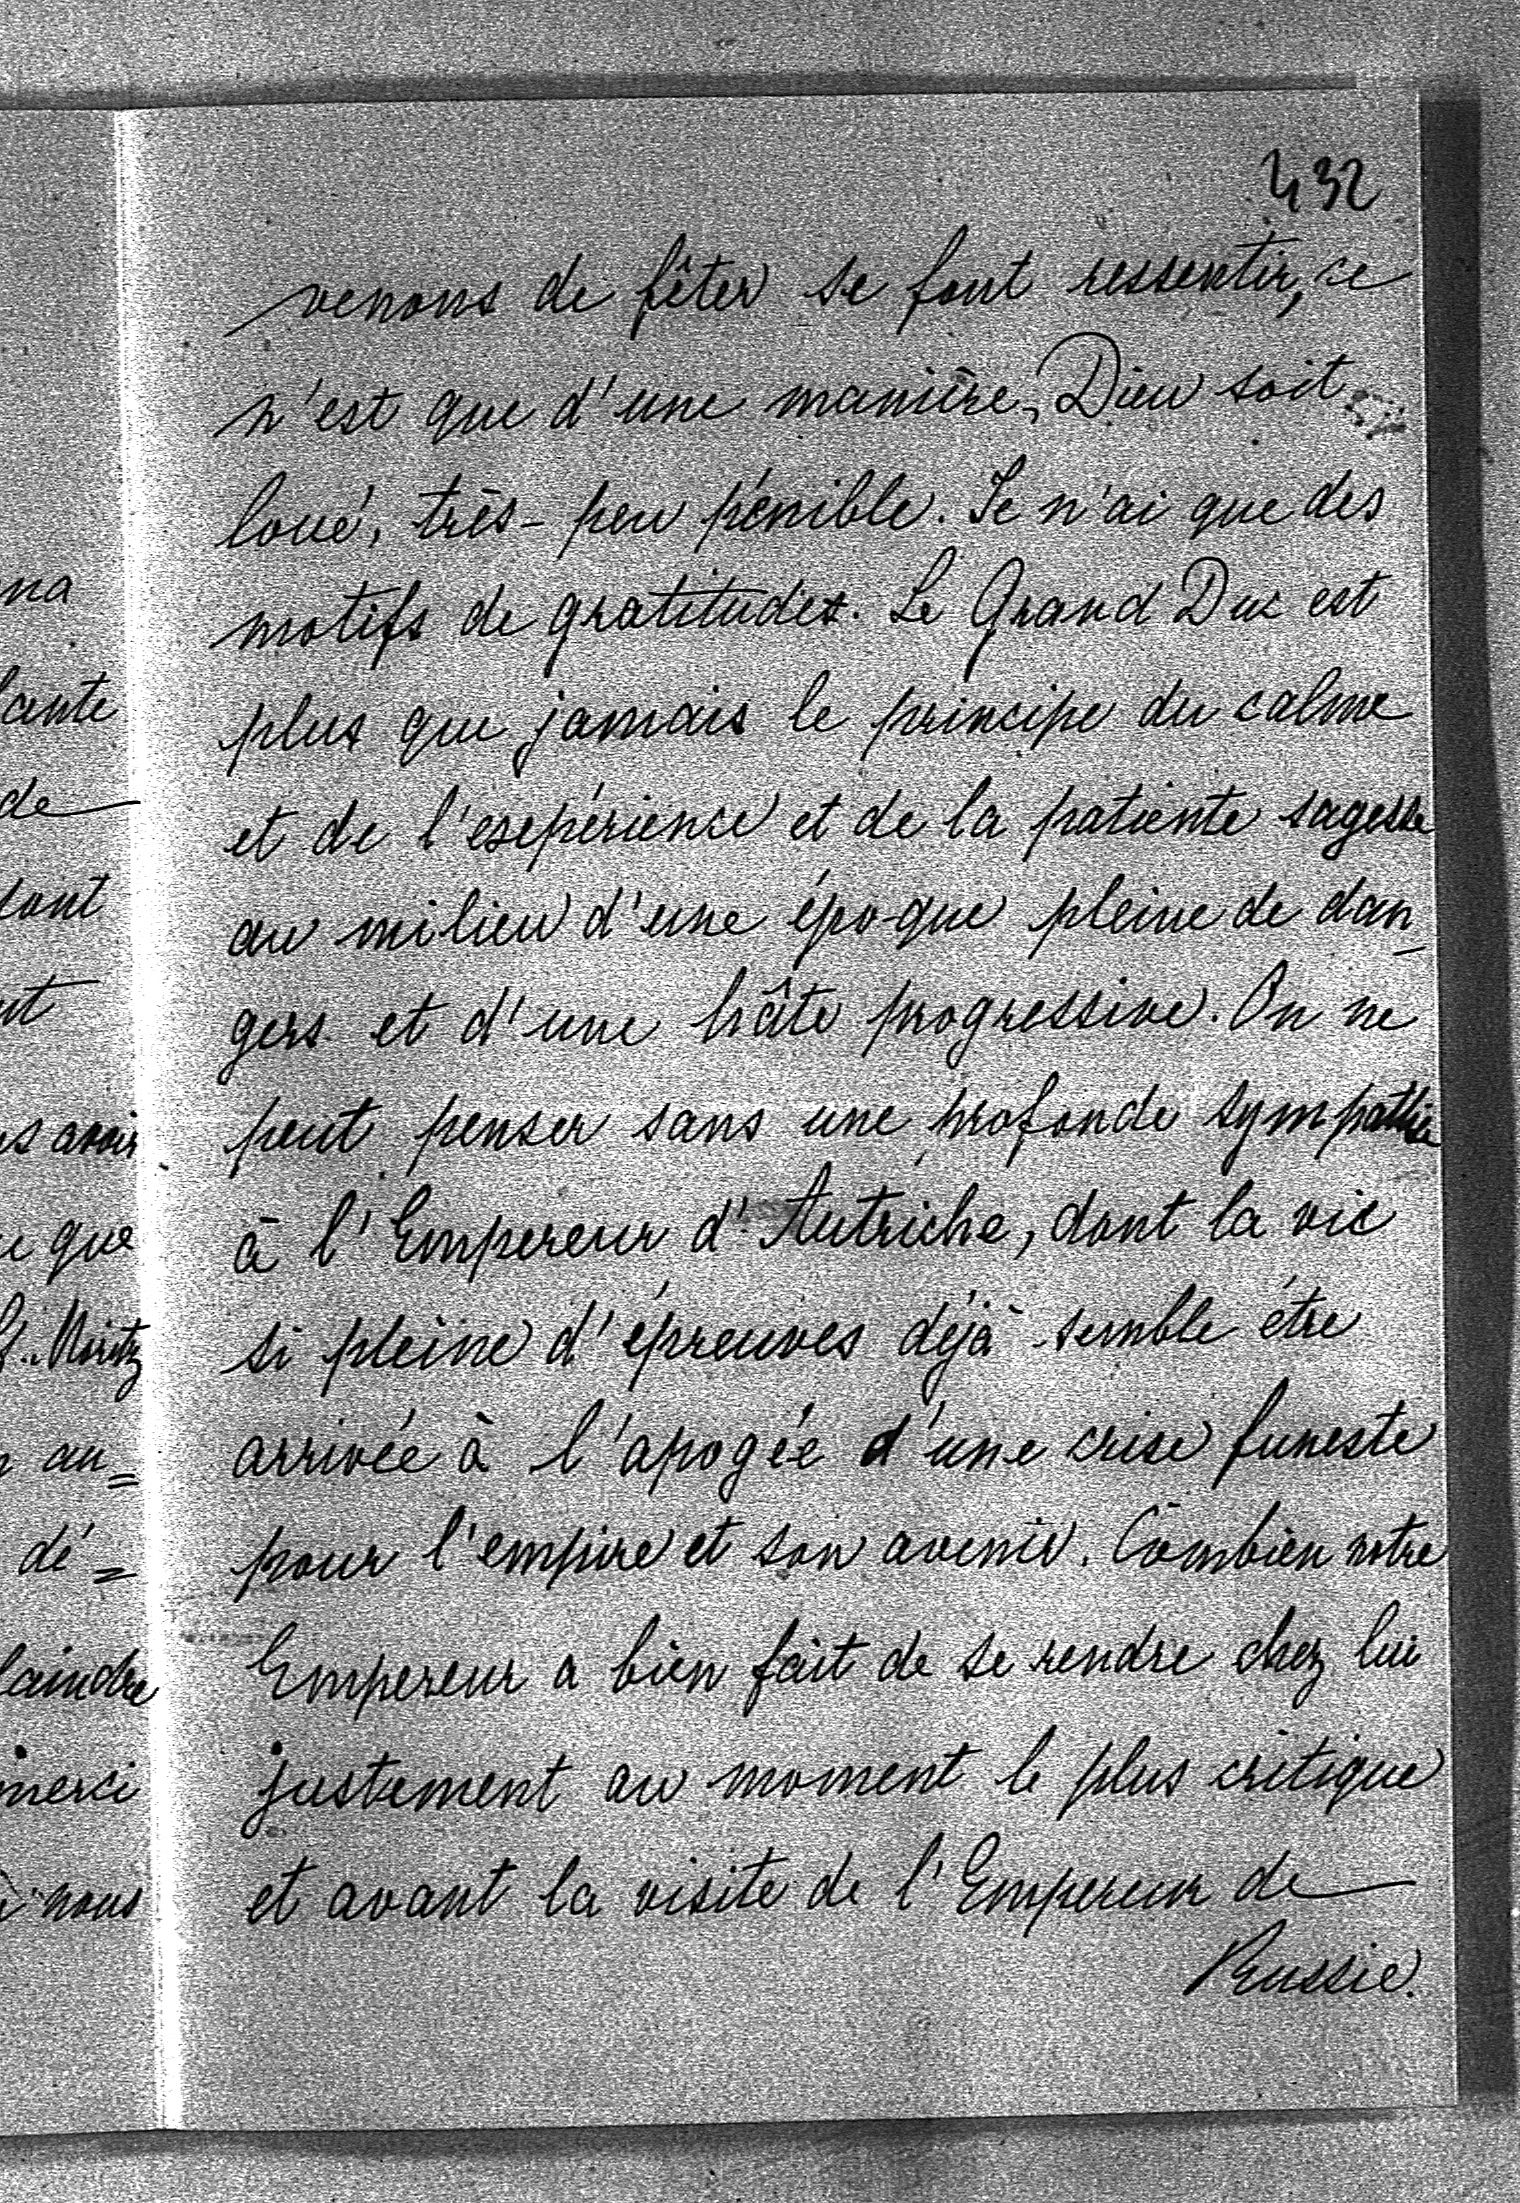 432
venons de fêter se font ressentir, ce
n'est que d'une manière, Dieu soit
loué, très-peu pénible. Je n'ai que des
motifs de gratitudes. Le Grand Duc est
plus que jamais le principe du calme
et de l'esepérience et de la patiente sagesse
au milieu d'une époque pleine de dan_
gers et d'une hâte progressive. On ne
peut penser sans une profonde sympathie
à l'Empereur d'Autriche, dont la vie
si pleine d'épreuves déjà semble être
arrivée à l'apogée d'une crise funeste
pour l'empire et son avenir. Combien notre
Empereur a bien fait de se rendre chez lui
justement au moment le plus critique
et avant la visite de l'Empereur de
Russie.
na
lante
de
dont
nt
es avoir
e que
St. Moritz
au=
dé=
laindre
merci
nous